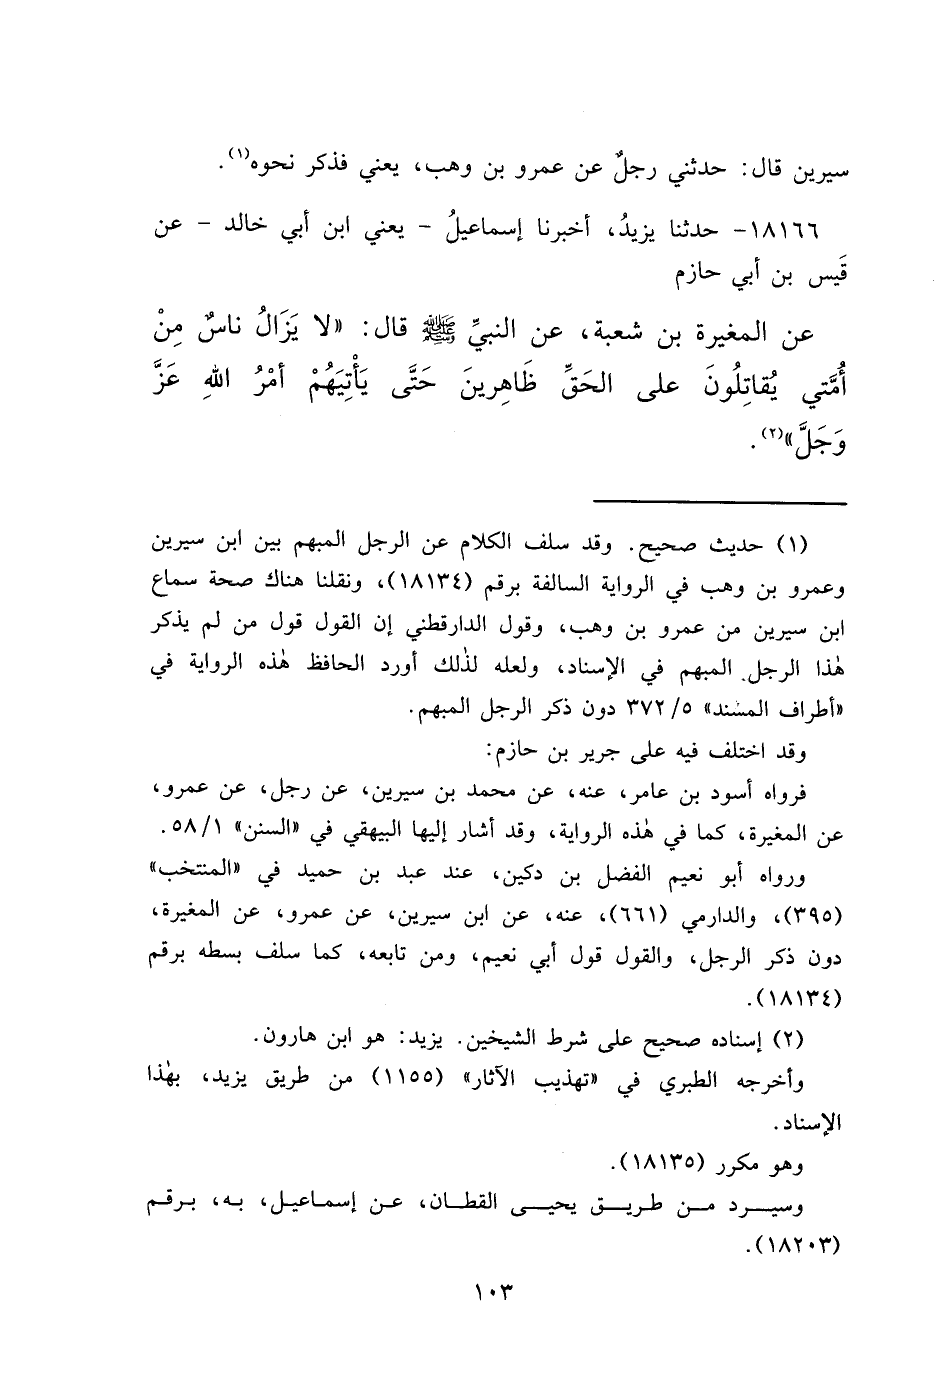 سيرين قال: حدثني رجلٌ عن عمرو بن وهب، يعني فذكر نحوه(١).
١٨١٦٦- حدثنا يزيدُ، أخبرنا إسماعيلُ - يعني ابن أبي خالد - عن
قَيس بن أبي حازم
عن المغيرة بن شعبة، عن النبيِّ ﷺ قال: «لا يَزَالُ ناسٌ مِنْ
أُمَّتي يُقاتِلُونَ على الحَقِّ ظَاهِرينَ حَتَّى يَأْتِيَهُمْ أمْرُ اللهِ عَزَّ
وَجَلَّ»(٢).
(١) حديث صحيح. وقد سلف الكلام عن الرجل المبهم بين ابن سيرين
وعمرو بن وهب في الرواية السالفة برقم (١٨١٣٤)، ونقلنا هناك صحة سماع
ابن سيرين من عمرو بن وهب، وقول الدارقطني إن القول قول من لم يذكر
هٰذا الرجل المبهم في الإسناد، ولعله لذٰلك أورد الحافظ هٰذه الرواية في
«أطراف المسند» ٥/ ٣٧٢ دون ذكر الرجل المبهم.
وقد اختلف فيه على جرير بن حازم:
فرواه أسود بن عامر، عنه، عن محمد بن سيرين، عن رجل، عن عمرو،
عن المغيرة، كما في هٰذه الرواية، وقد أشار إليها البيهقي في «السنن» ١/ ٥٨.
ورواه أبو نعيم الفضل بن دكين، عند عبد بن حميد في «المنتخب»
(٣٩٥)، والدارمي (٦٦١)، عنه، عن ابن سيرين، عن عمرو، عن المغيرة،
دون ذكر الرجل، والقول قول أبي نعيم، ومن تابعه، كما سلف بسطه برقم
(١٨١٣٤).
(٢) إسناده صحيح على شرط الشيخين. يزيد: هو ابن هارون.
وأخرجه الطبري في «تهذيب الآثار» (١١٥٥) من طريق يزيد، بهٰذا
الإسناد.
وهو مكرر (١٨١٣٥).
وسيرد من طريق يحيى القطان، عن إسماعيل، به، برقم
(١٨٢٠٣).
١٠٣